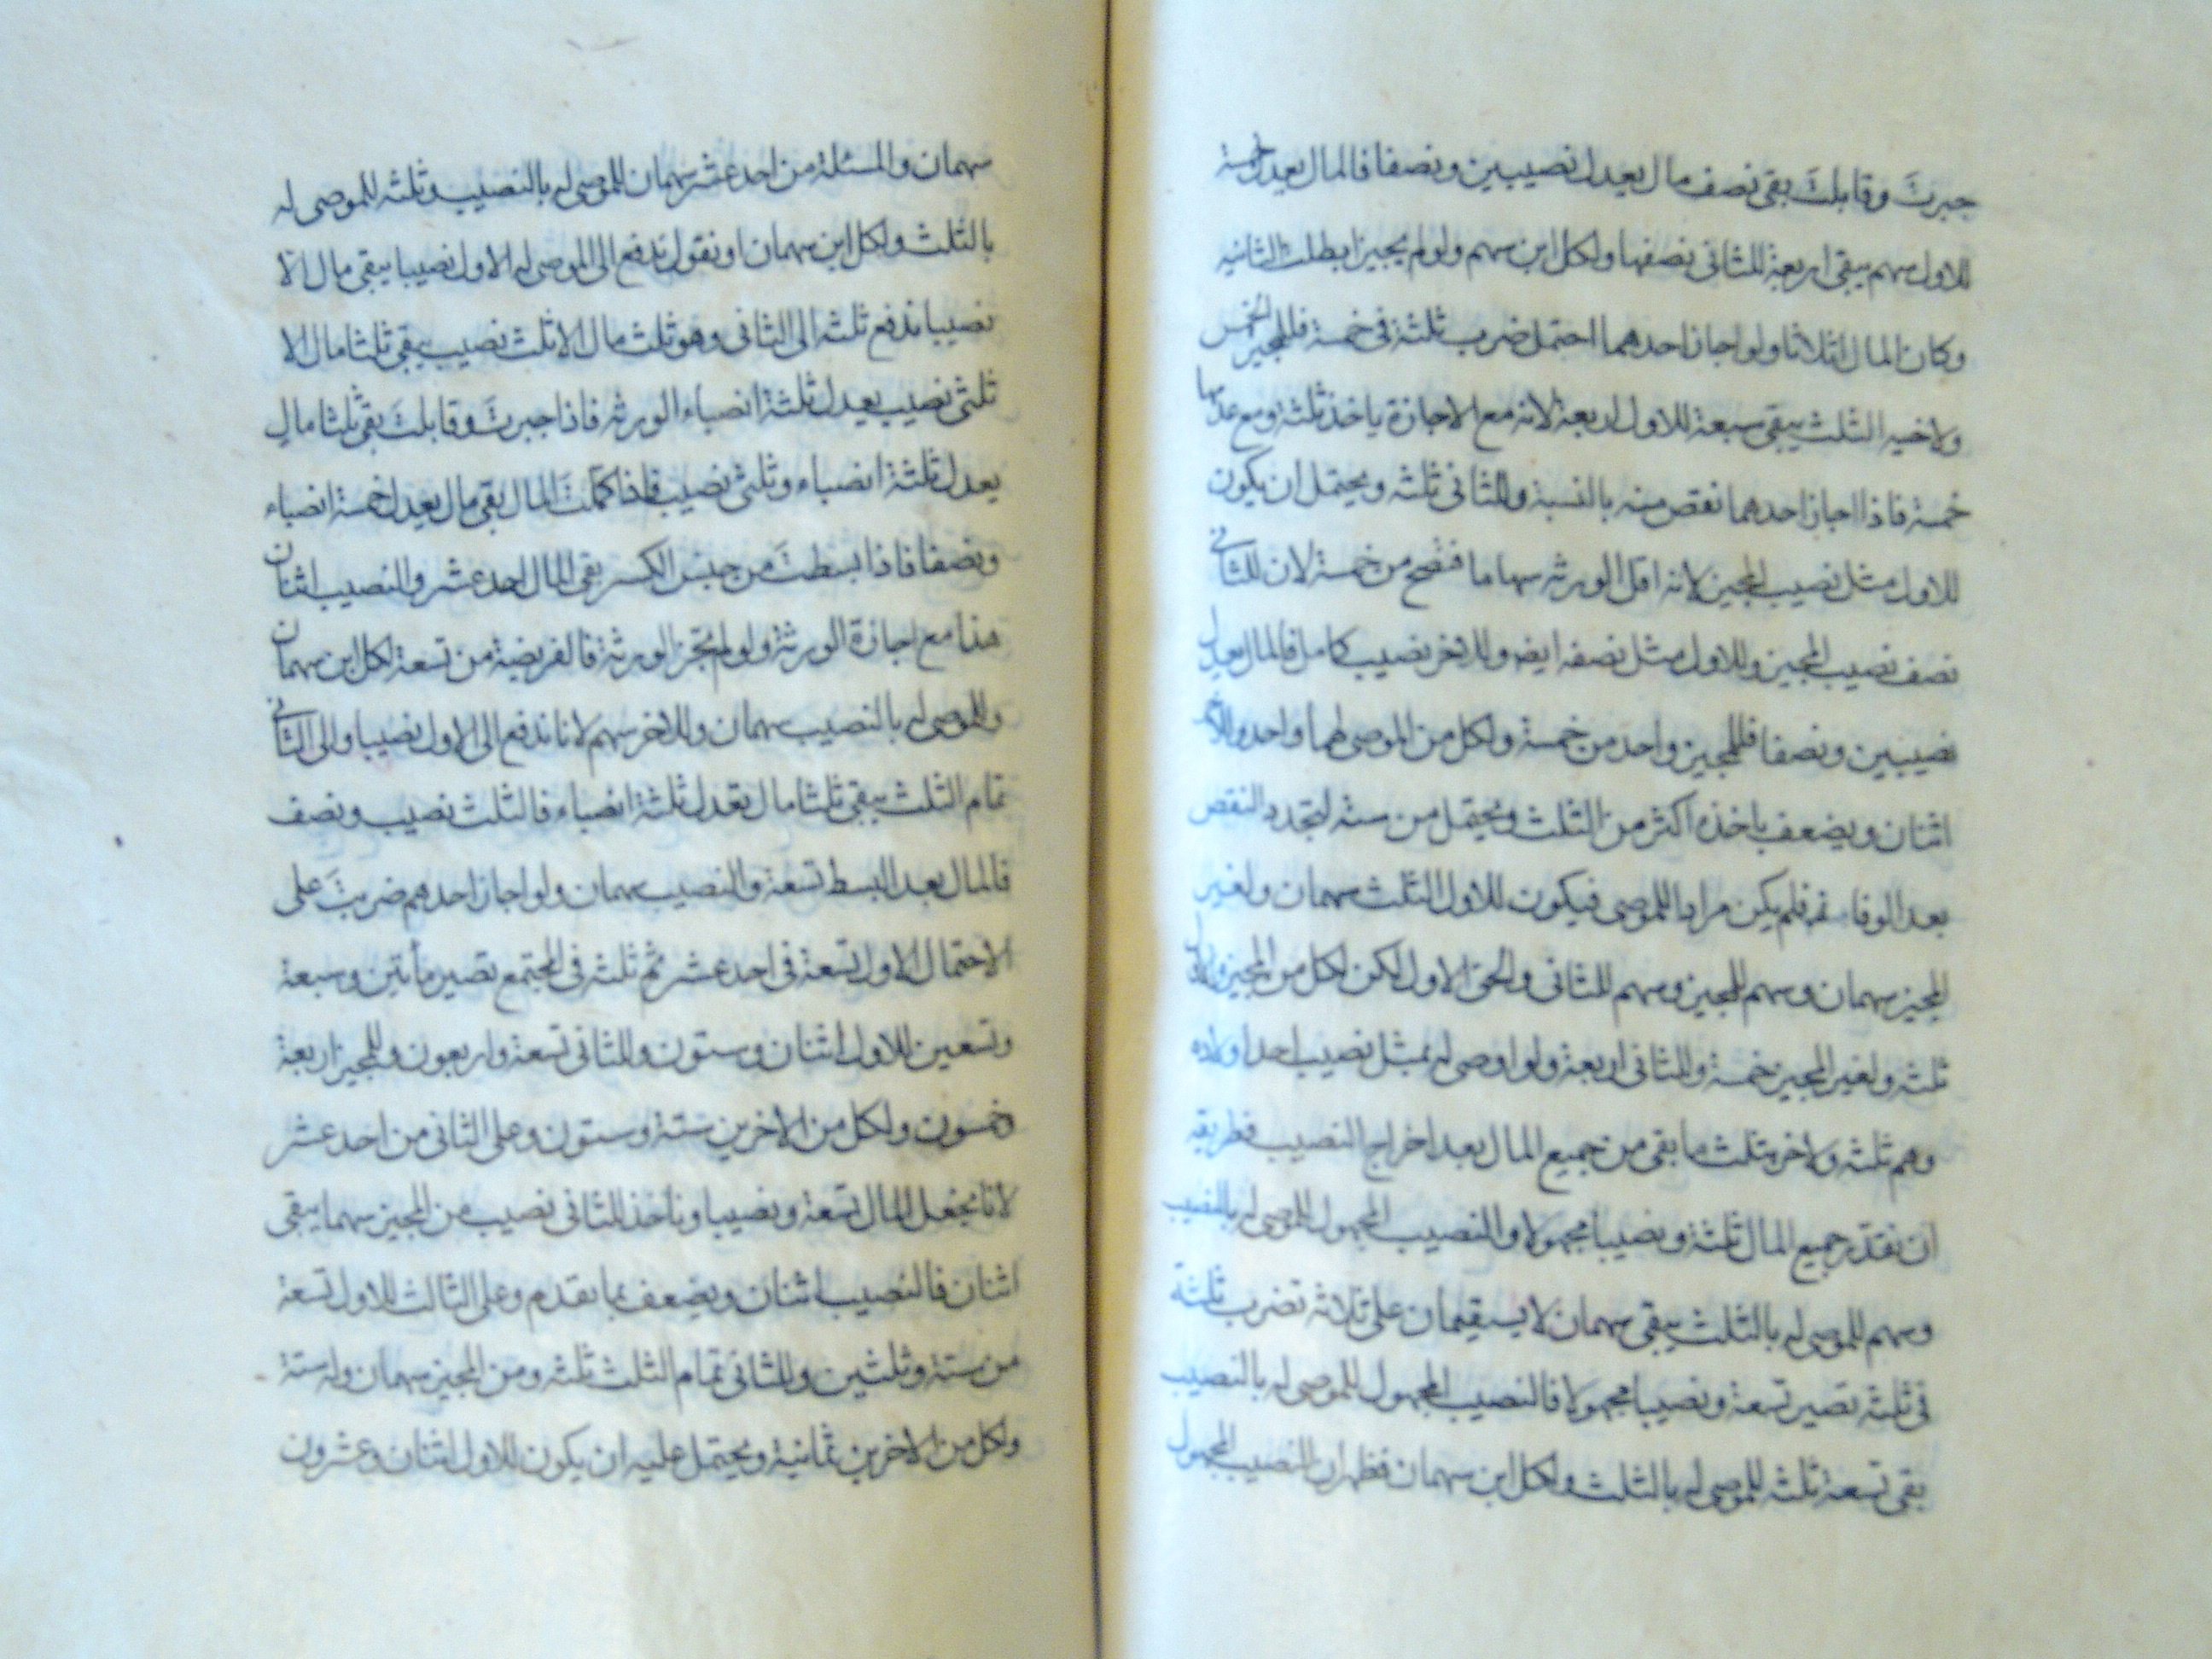 جبرتَ وقابلتَ بقى نصف مال يعدل نصيبين ونصفا فالمال يعدل خمسة
للاول سهم يبقى اربعة للثانى نصفها ولكل ابن سهم ولو لم يجيزا بطلت الثانيه
وكان المال اثلاثا ولو اجاز احدهما احتمل ضرب ثلثة فى خمسة فللمجيز الخمس
ولاخيه الثلث يبقى سبعة للاول اربعة لانه مع الاجازة ياخذ ثلثة ومع عدمها
خمسة فاذا اجاز احدهما نقص منه بالنسبة وللثانى ثلثه ويحتمل ان يكون
للاول مثل نصيب المجيز لانه اقل الورثه سهاما فتصح من خمسة لان للثانى
نصف نصيب المجيز وللاول مثل نصفه ايضا وللاخر نصيب كامل فالمال يعدل
نصيبين ونصفا فللمجيز واحد من خمسة ولكل من الموصى لهما واحد وللاخر
اثنان ويضعف باخذه اكثر من الثلث ويحتمل من ستة لتجدد النقص
بعد الوفاة فلم يكن مرادا للموصى فيكون للاول الثلث سهمان ولغير
المجيز سهمان وسهم للمجيز وسهم للثانى والحق الاول لكن لكل من المجيز والاول
ثلثه ولغير المجيز خمسة وللثانى اربعة ولو اوصى له بمثل نصيب احد اولاده
وهم ثلثه ولاخر بثلث ما بقى من جميع المال بعد اخراج النصيب فطريقه
ان نقدّر جميع المال ثلثة ونصيبا مجهولا والنصيب المجهول للموصى له بالنصيب
وسهم للموصى له بالثلث يبقى سهمان لا يستقيمان على ثلاثه تضرب ثلثة
فى ثلثه تصير تسعة ونصيبا مجهولا فالنصيب المجهول للموصى له بالنصيب
بقى تسعة ثلثه للموصى له بالثلث ولكل ابن سهمان فظهر ان النصيب المجهول
سهمان والمسئلة من احد عشر سهمان للموصى له بالنصيب وثلثه للموصى له
بالثلث ولكل ابن سهمان او نقول ندفع الى الموصى له الاول نصيبا يبقى مال الا
نصيبا ندفع ثلثه الى الثانى وهو ثلث مال الا ثلث نصيب يبقى ثلثا مال الا
ثلثى نصيب يعدل ثلثة انصباء الورثه فاذا جبرتَ وقابلتَ بقى ثلثا مال
يعدل ثلثة انصباء وثلثى نصيب فاذا كمّلتَ المال بقى مال يعدل خمسة انصباء
ونصفا فاذا بسطتَ من جنس الكسر بقى المال احد عشر والنصيب اثنان
هذا مع اجازة الورثة ولو لم تجز الورثة فالفريضة من تسعة لكل ابن سهمان
وللموصى له بالنصيب سهمان وللاخر سهم لانا ندفع الى الاول نصيبا والى الثانى
تمام الثلث يبقى ثلثا مال تعدل ثلثة انصباء فالثلث نصيب ونصف
فالمال بعد البسط تسعة والنصيب سهمان ولو اجاز احدهم ضربتَ على
الاحتمال الاول تسعة فى احد عشر ثم ثلثه فى المجتمع تصير مأتين وسبعة
وتسعين للاول اثنان وستون وللثانى تسعة واربعون وللمجيز اربعة
وخمسون ولكل من الاخرين ستة وستون وعلى الثانى من احد عشر
لانا نجعل المال تسعة ونصيبا وناخذ للثانى نصيب من المجيز سهما يبقى
اثنان فالنصيب اثنان ويضعف بما تقدم وعلى الثالث للاول تسعة
من ستة وثلثين وللثانى تمام الثلث ثلثه ومن المجيز سهمان وله ستة
ولكل من الاخرين ثمانية ويحتمل عليه ان يكون للاول اثنان وعشرون